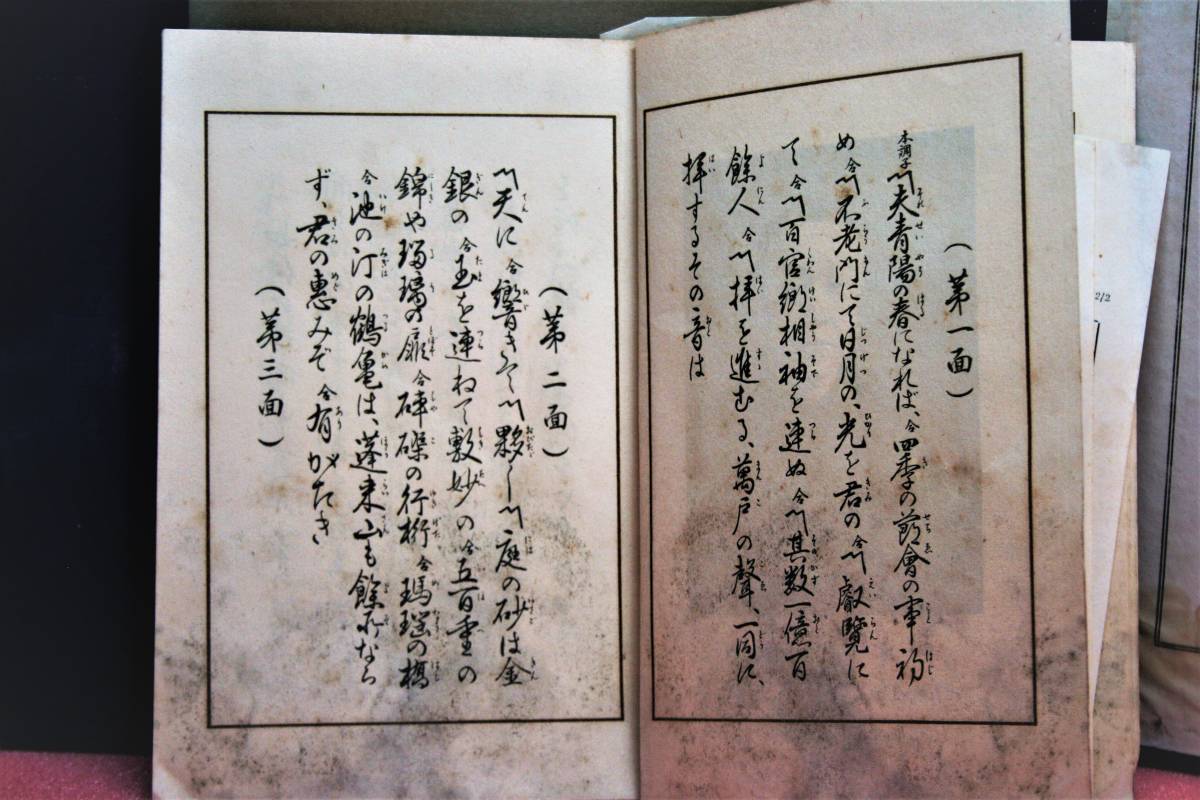 (第一面)
本調子〽夫青陽の春になれば、合四季の節會の事初
め合〽不老門にて日月の、光を君の合〽叡覽に
て合〽百官卿相袖を連ぬ合〽其数一億百
餘人合〽拝を進むる、萬戸の聲、一同に、
拝するその音は
(第二面)
〽天に合響きて〽夥し〽庭の砂は金
銀の合玉を連ねて敷妙の合五百重の
錦や瑠璃の扉合硨磲の行桁合瑪瑙の橋
合池の汀の鶴亀は、蓬来山も餘所なら
ず、君の惠みぞ合有がたき
(第三面)
2/2